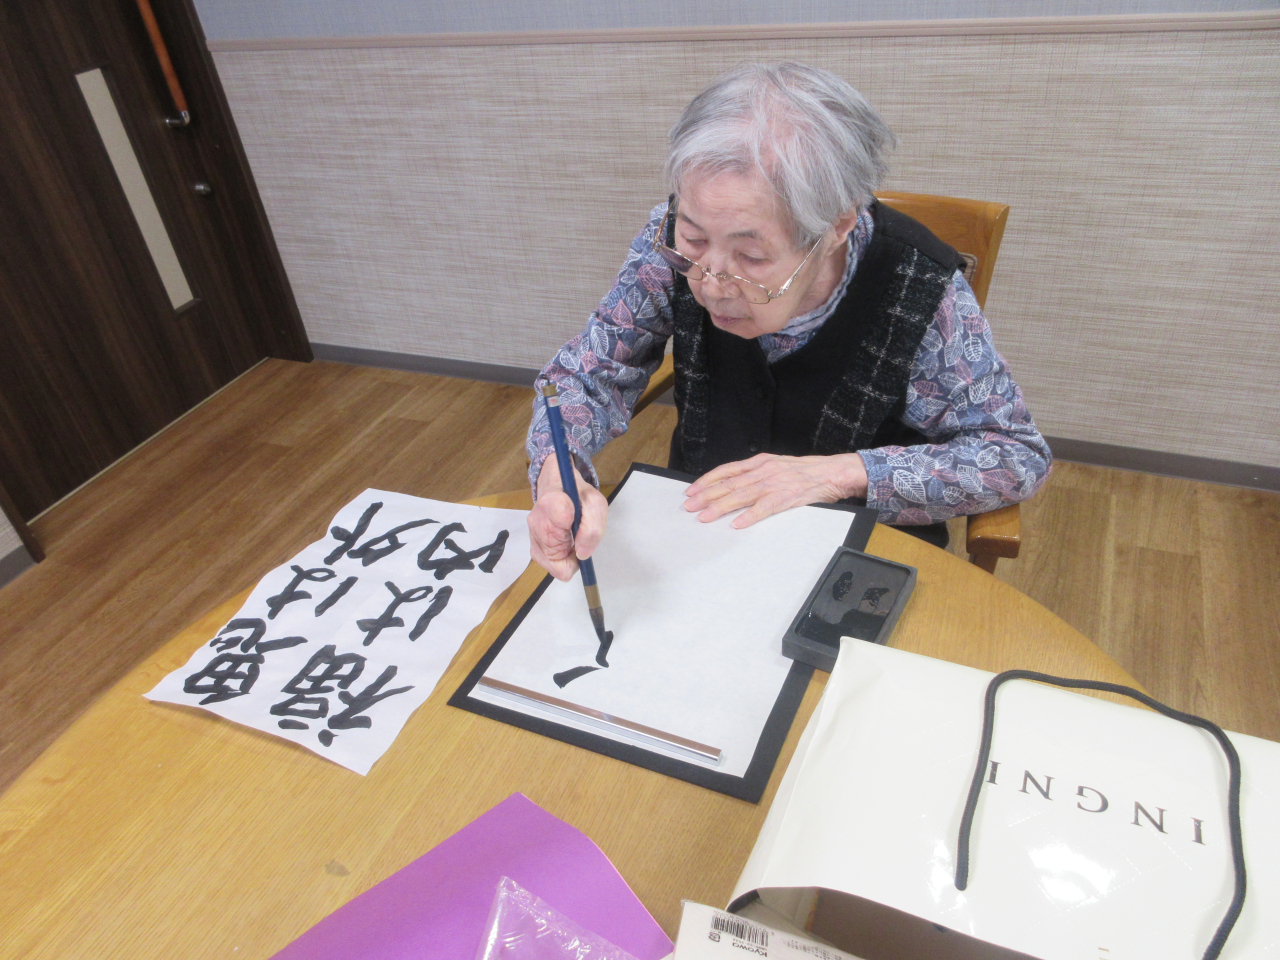 鬼は外
福は内
INGNI
Kyowa